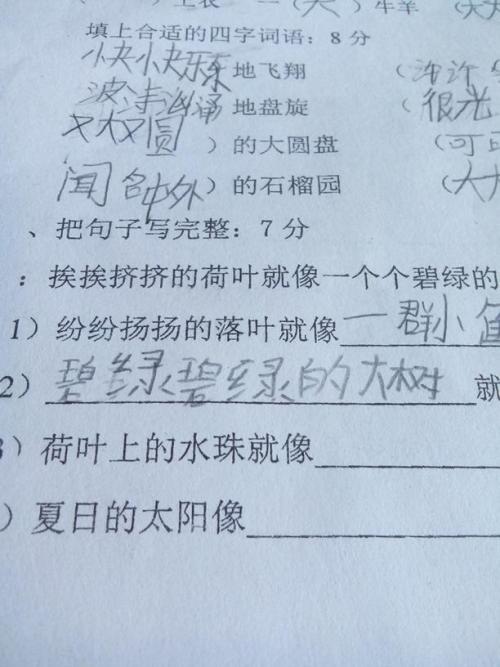 ) 上衣 一(大) 牛羊 (大
填上合适的四字词语:8分
快快乐乐 地飞翔 (许许
波涛汹涌 地盘旋 (很光
又大又圆 )的大圆盘 (可
闻名中外 )的石榴园 (大
、把句子写完整:7分
:挨挨挤挤的荷叶就像一个个碧绿的
1)纷纷扬扬的落叶就像一群小鱼
2)碧绿碧绿的大树 就
3)荷叶上的水珠就像
)夏日的太阳像